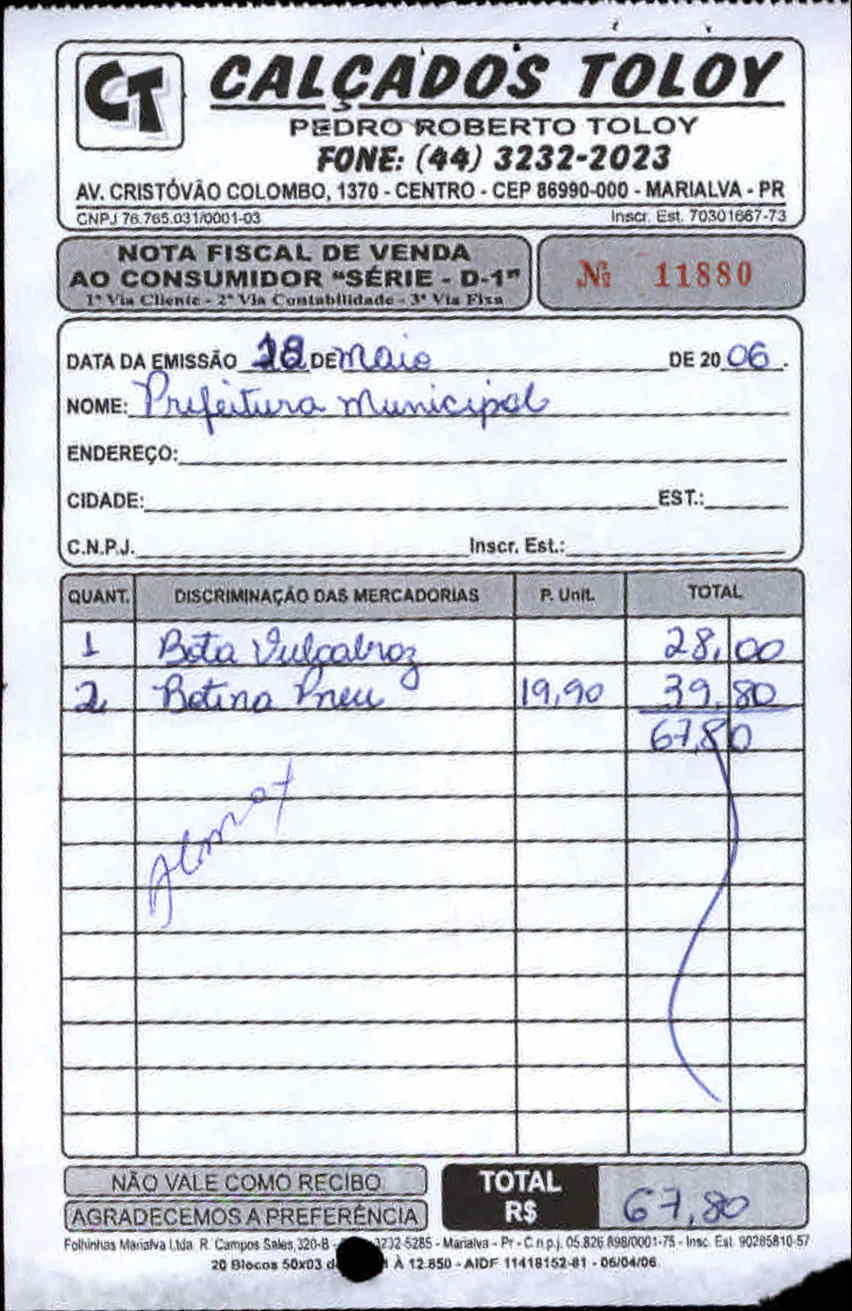 CT
CALÇADOS TOLOY
PEDRO ROBERTO TOLOY
FONE: (44) 3232-2023
AV. CRISTÓVÃO COLOMBO, 1370 - CENTRO - CEP 86990-000 - MARIALVA - PR
CNPJ 76.765.031/0001-03 Inscr. Est. 70301667-73
NOTA FISCAL DE VENDA
AO CONSUMIDOR "SÉRIE - D-1"
1ª Via Cliente - 2ª Via Contabilidade - 3ª Via Fixa
Nº 11880
DATA DA EMISSÃO 18 DE Maio DE 20 06.
NOME: Prefeitura Municipal
ENDEREÇO:
CIDADE: EST.:
C.N.P.J. Inscr. Est.:
QUANT. DISCRIMINAÇÃO DAS MERCADORIAS P. Unit. TOTAL
1 Bota Vulcabraz 28,00
2 Botina Pneu 19,90 39,80
67,80
NÃO VALE COMO RECIBO
AGRADECEMOS A PREFERÊNCIA
TOTAL R$ 67,80
Folhinhas Marialva Ltda. R. Campos Sales, 320-B - 3232-5285 - Marialva - Pr - C.n.p.j. 05.826.898/0001-75 - Insc. Est. 90285810-57
20 Blocos 50x03 À 12.850 - AIDF 11418152-81 - 06/04/06